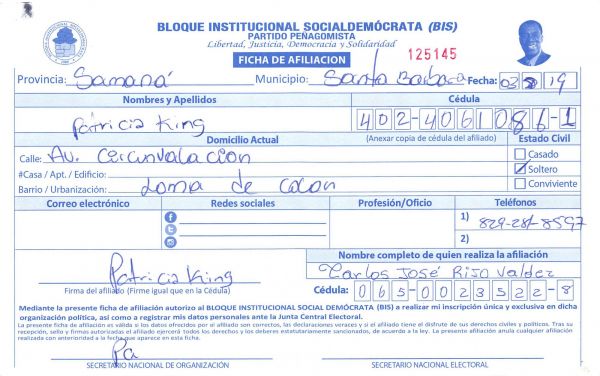 BLOQUE INSTITUCIONAL SOCIALDEMÓCRATA (BIS)
PARTIDO PEÑAGOMISTA
Libertad, Justicia, Democracia y Solidaridad
FICHA DE AFILIACION
125145
Provincia: Samaná Municipio: Santa Barbara Fecha: 03 19
Nombres y Apellidos Cédula
Patricia King 402-4061086-1
Domicilio Actual (Anexar copia de cédula del afiliado) Estado Civil
Calle: Av. Circunvalacion Casado
#Casa / Apt. / Edificio: Soltero
Barrio / Urbanización: Loma de Colon Conviviente
Correo electrónico Redes sociales Profesión/Oficio Teléfonos
1) 829-281-8597
2)
Nombre completo de quien realiza la afiliación
Patricia King Carlos José Rijo Valdez
Firma del afiliado (Firme igual que en la Cédula) Cédula: 065-0023522-8
Mediante la presente ficha de afiliación autorizo al BLOQUE INSTITUCIONAL SOCIAL DEMÓCRATA (BIS) a realizar mi inscripción única y exclusiva en dicha
organización política, así como a registrar mis datos personales ante la Junta Central Electoral.
La presente ficha de afiliación es válida si los datos ofrecidos por el afiliado son correctos, las declaraciones veraces y si el afiliado tiene el disfrute de sus derechos civiles y políticos. Tras su
recepción, sello y firmas autorizadas el afiliado ejercerá todos los derechos y los deberes estatutariamente sancionados, de acuerdo a la ley. La presente afiliación anula cualquier afiliación
realizada con anterioridad a la fecha que aparece en esta ficha.
Pa
SECRETARIO NACIONAL DE ORGANIZACIÓN SECRETARIO NACIONAL ELECTORAL